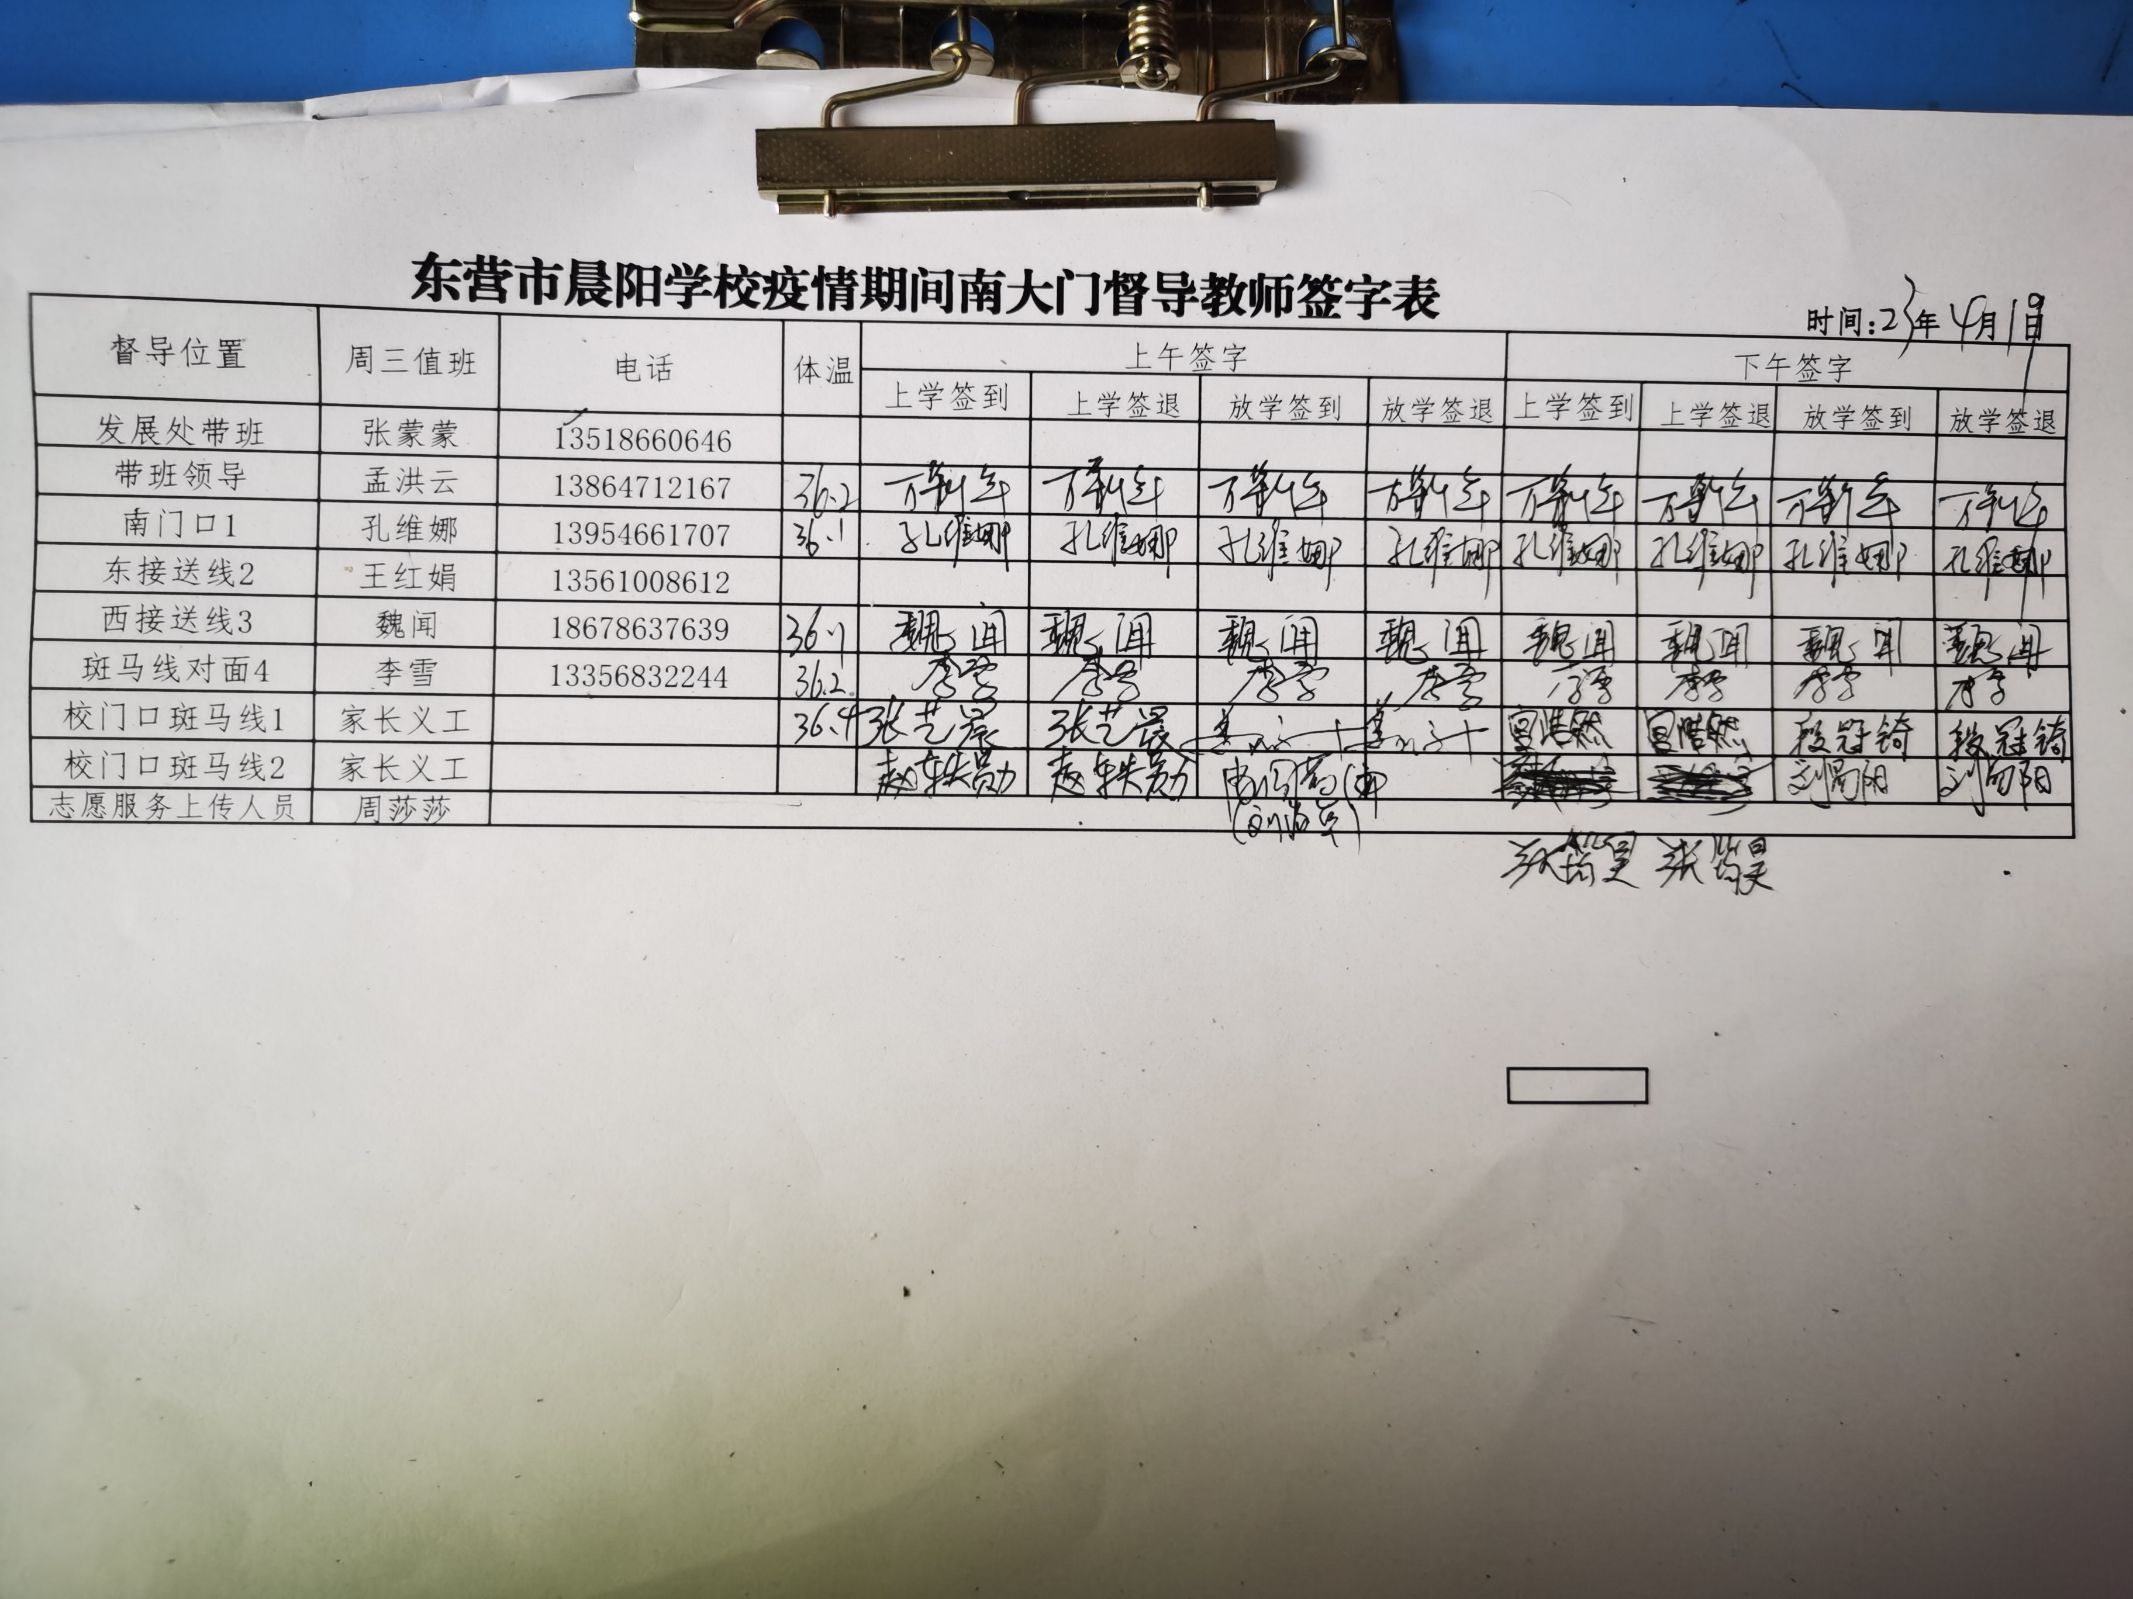 东营市晨阳学校疫情期间南大门督导教师签字表
时间:23年4月19日
督导位置 周三值班 电话 体温 上午签字 下午签字
上学签到 上学签退 放学签到 放学签退 上学签到 上学签退 放学签到 放学签退
发展处带班 张蒙蒙 13518660646
带班领导 孟洪云 13864712167 36.2
南门口1 孔维娜 13954661707 36.1 孔维娜 孔维娜 孔维娜 孔维娜 孔维娜 孔维娜 孔维娜 孔维娜
东接送线2 王红娟 13561008612
西接送线3 魏闻 18678637639 36.1 魏闻 魏闻 魏闻 魏闻 魏闻 魏闻 魏闻 魏闻
斑马线对面4 李雪 13356832244 36.2 李雪 李雪 李雪 李雪 李雪 李雪 李雪 李雪
校门口斑马线1 家长义工 36.4 张艺晨 张艺晨 宫浩然 宫浩然 段冠锜 段冠锜
校门口斑马线2 家长义工 赵轶勋 赵轶勋 刘向阳 刘向阳
志愿服务上传人员 周莎莎